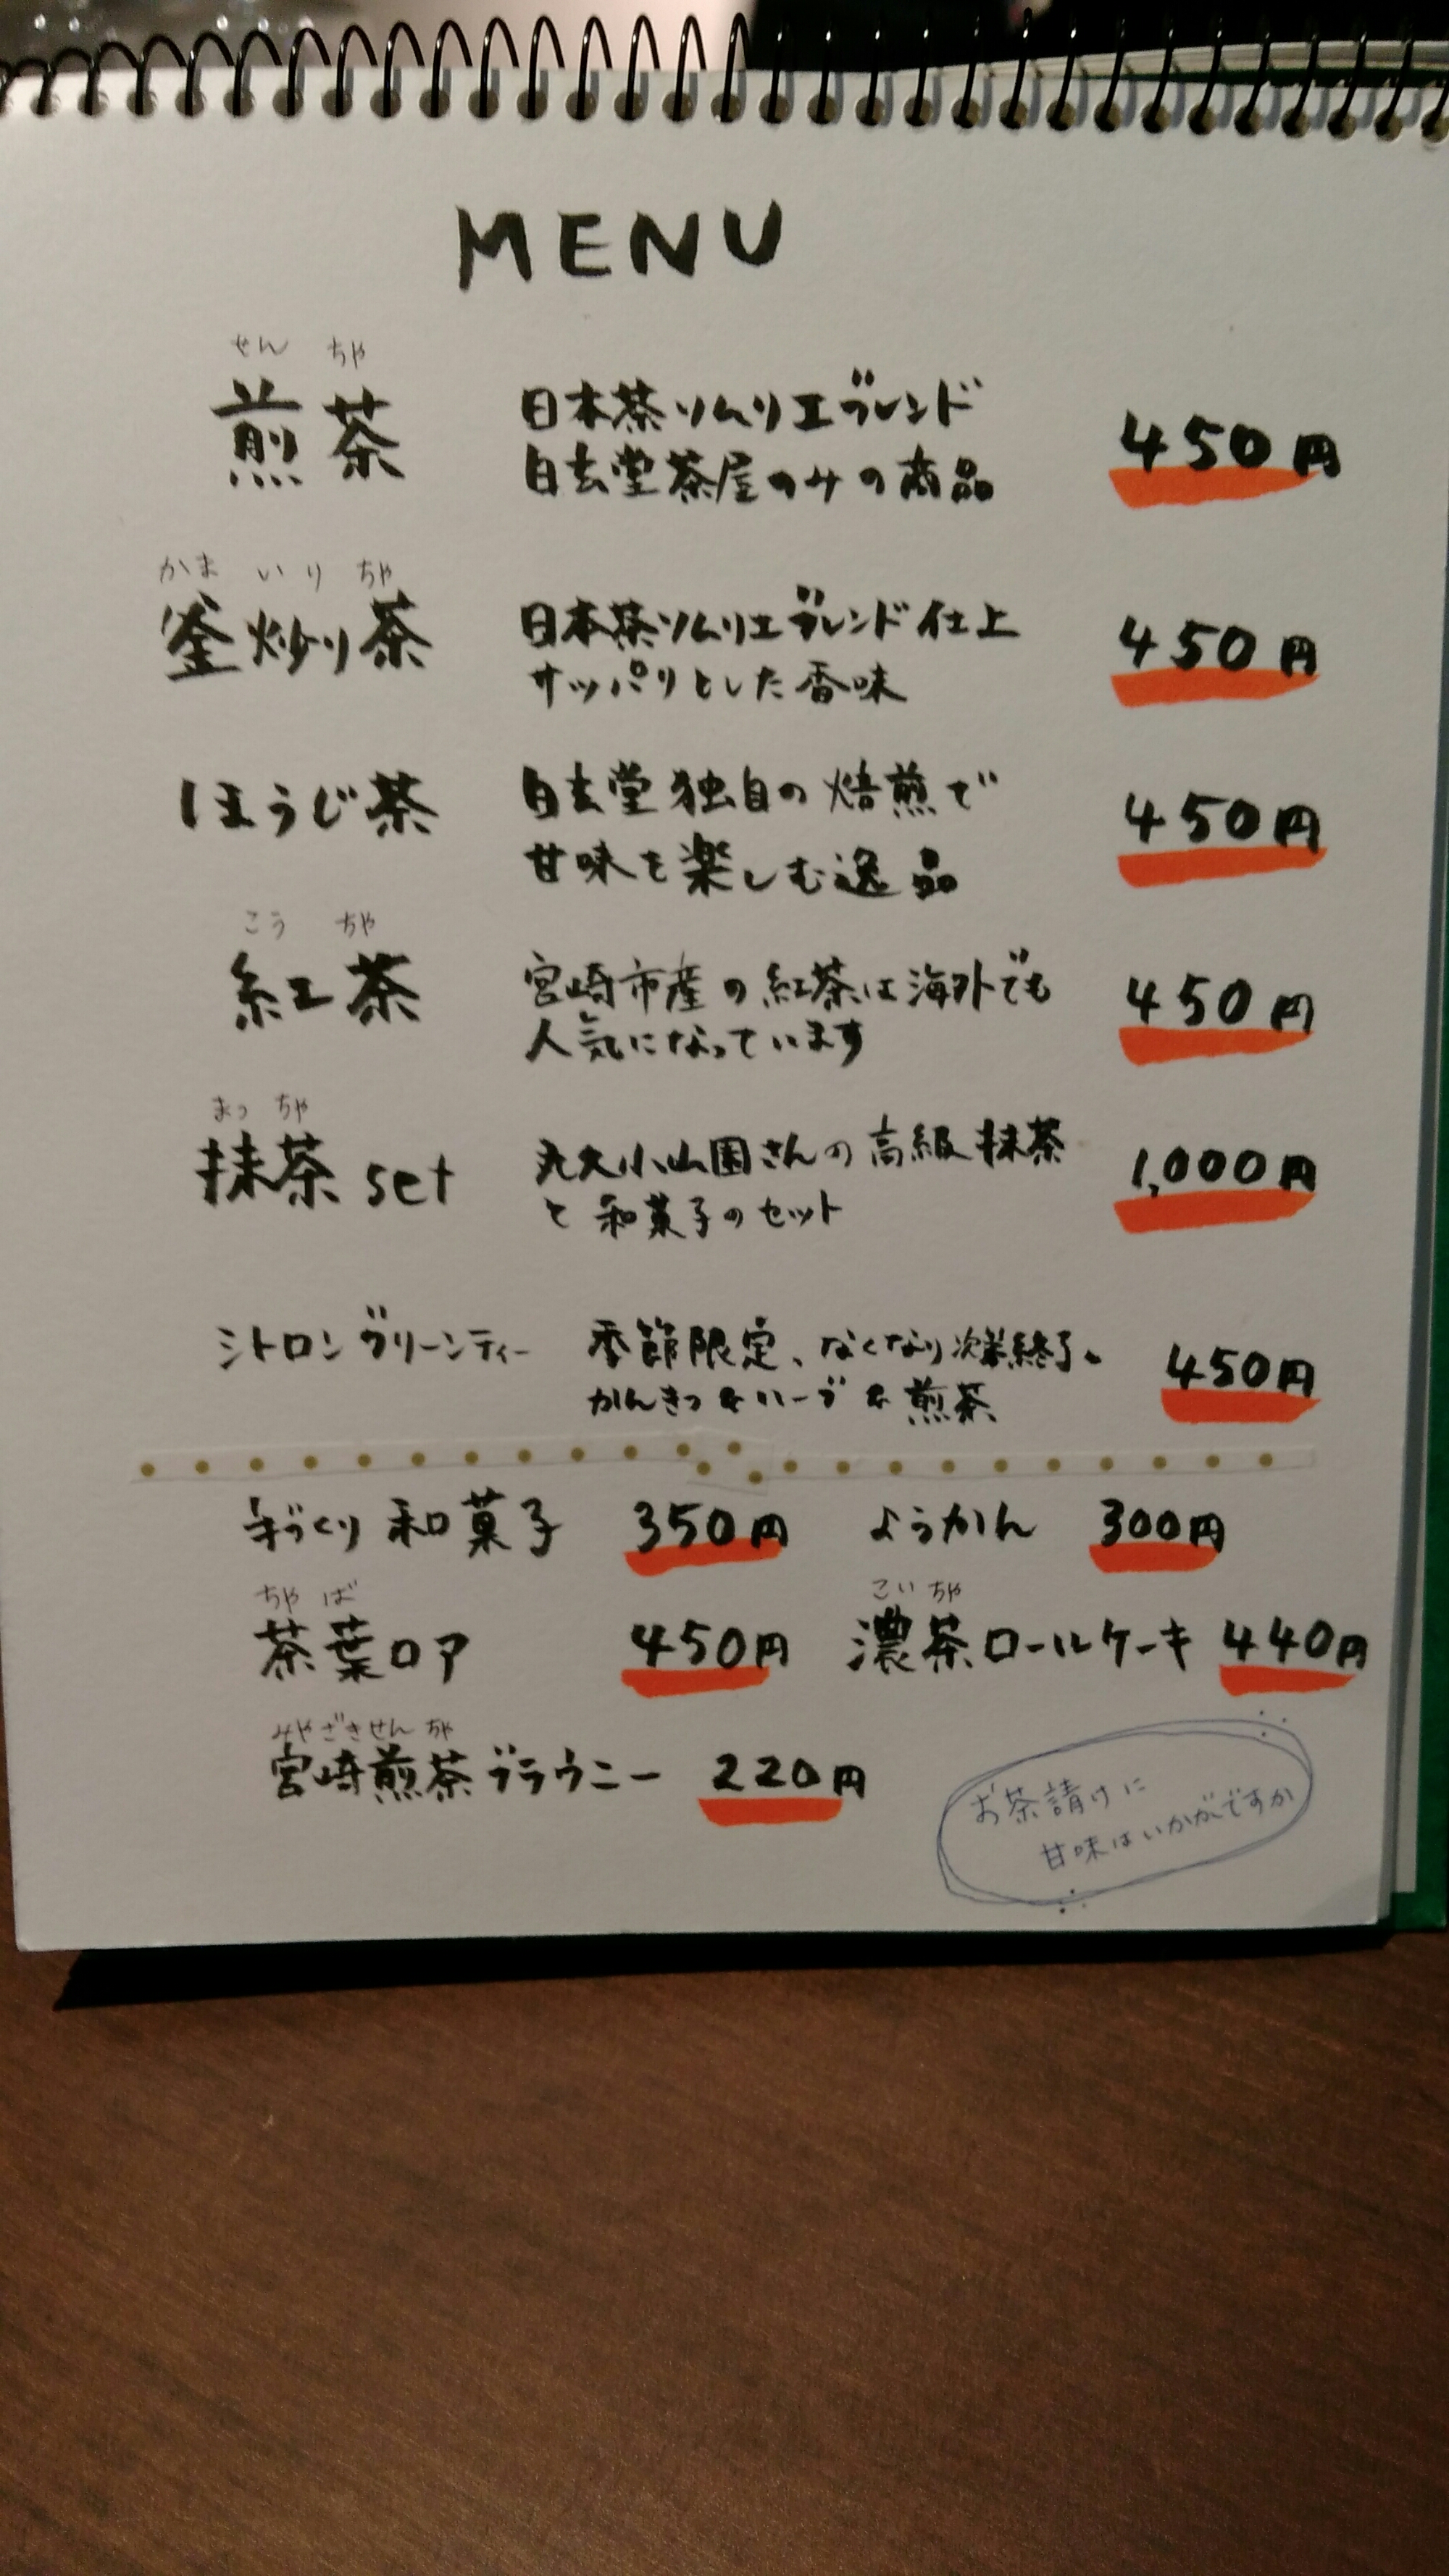 MENU
せんちゃ
煎茶 日本茶ソムリエブレンド 450円
白玄堂茶屋のみの商品
かまいりちゃ
釜炒り茶 日本茶ソムリエブレンド仕上 450円
サッパリとした香味
ほうじ茶 白玄堂独自の焙煎で 450円
甘味を楽しむ逸品
こうちゃ
紅茶 宮崎市産の紅茶は海外でも 450円
人気になっています
まっちゃ
抹茶set 丸久小山園さんの高級抹茶 1,000円
と和菓子のセット
シトロングリーンティー 季節限定、なくなり次第終了。 450円
かんきつ&ハーブ&煎茶
手づくり和菓子 350円 ようかん 300円
ちゃば こいちゃ
茶葉ロア 450円 濃茶ロールケーキ 440円
みやざきせんちゃ
宮崎煎茶ブラウニー 220円
お茶請けに
甘味はいかがですか